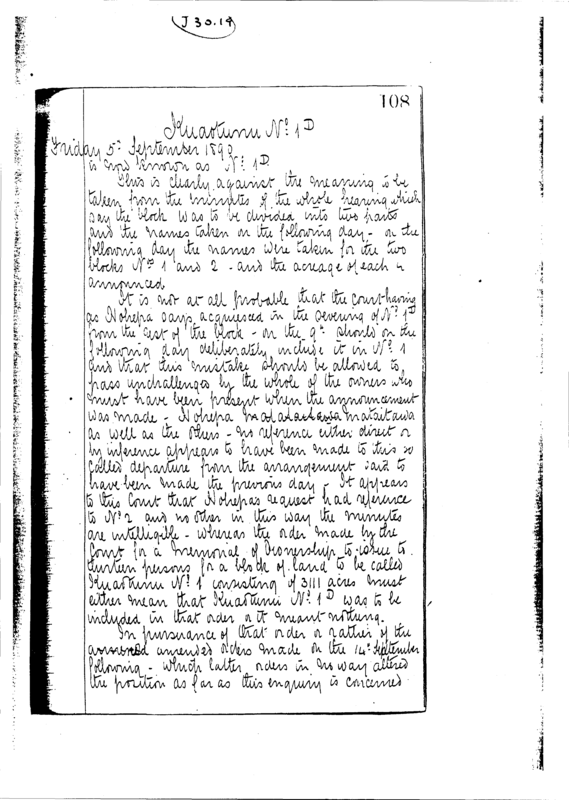 J 30.14
108
Kuaotunu No. 1D
Friday 5th September 1890
is now known as No. 1D.
This is clearly against the meaning to be
taken from the minutes of the whole hearing which
say the block was to be divided into two parts
and the names taken on the following day - on the
following day the names were taken for the two
blocks Nos 1 and 2 - and the acreage of each is
announced
It is not at all probable that the court having
as Nohepa says acquiesced in the severing of No. 1D
from the rest of the block - on the 9th should on the
following day deliberately include it in No. 1
and that this mistake should be allowed to
pass unchallenged by the whole of the owners who
must have been present when the announcement
was made - Nohepa Mataitawa
as well as the others - no reference either direct or
by inference appears to have been made to this so
called departure from the arrangement said to
have been made the previous day - It appears
to this Court that Nohepas request had reference
to No. 2 and no other in this way the minutes
are intelligible - whereas the order made by the
Court for a Memorial of Ownership to issue to
thirteen persons for a block of land to be called
Kuaotunu No. 1 consisting of 3111 acres must
either mean that Kuaotunu No. 1D was to be
included in that order or it meant nothing.
In pursuance of that order or rather of the
amended orders made on the 14th September
following - which latter orders in no way altered
the position as far as this enquiry is concerned